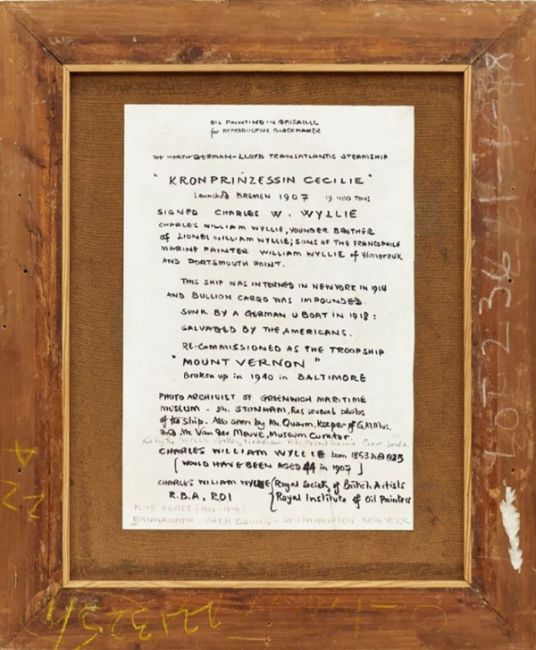 OIL PAINTING IN GRISAILLE
for REPRODUCTIVE BLOCKMAKER
THE NORTH GERMAN-LLOYD TRANSATLANTIC STEAMSHIP
" KRONPRINZESSIN CECILIE "
Launched BREMEN 1907 19 400 TONS
SIGNED CHARLES W. WYLLIE
CHARLES WILLIAM WYLLIE, YOUNGER BROTHER
of LIONEL WILLIAM WYLLIE; SONS OF THE FRANCOPHILE
MARINE PAINTER WILLIAM WYLLIE of Wimereux
AND PORTSMOUTH POINT.
THIS SHIP WAS INTERNED IN NEW YORK IN 1914
AND BULLION CARGO WAS IMPOUNDED.
SUNK BY A GERMAN U BOAT IN 1918:
SALVAGED BY THE AMERICANS.
RE-COMMISSIONED AS THE TROOPSHIP
" MOUNT VERNON "
Broken up in 1940 in BALTIMORE
PHOTO ARCHIVIST OF GREENWICH MARITIME
MUSEUM - DR. STONHAM, has several photos
of the ship. Also seen by Mr. Quarm, Keeper of
and Mr. Van der Merwe, Museum Curator.
CHARLES WILLIAM WYLLIE born 1853 died 1923
[ WOULD HAVE BEEN AGED 44 in 1907 ]
CHARLES WILLIAM WYLLIE (Royal Society of British Artists
R.B.A, ROI (Royal Institute of Oil Painters
- CHERBOURG - SOUTHAMPTON - NEW YORK